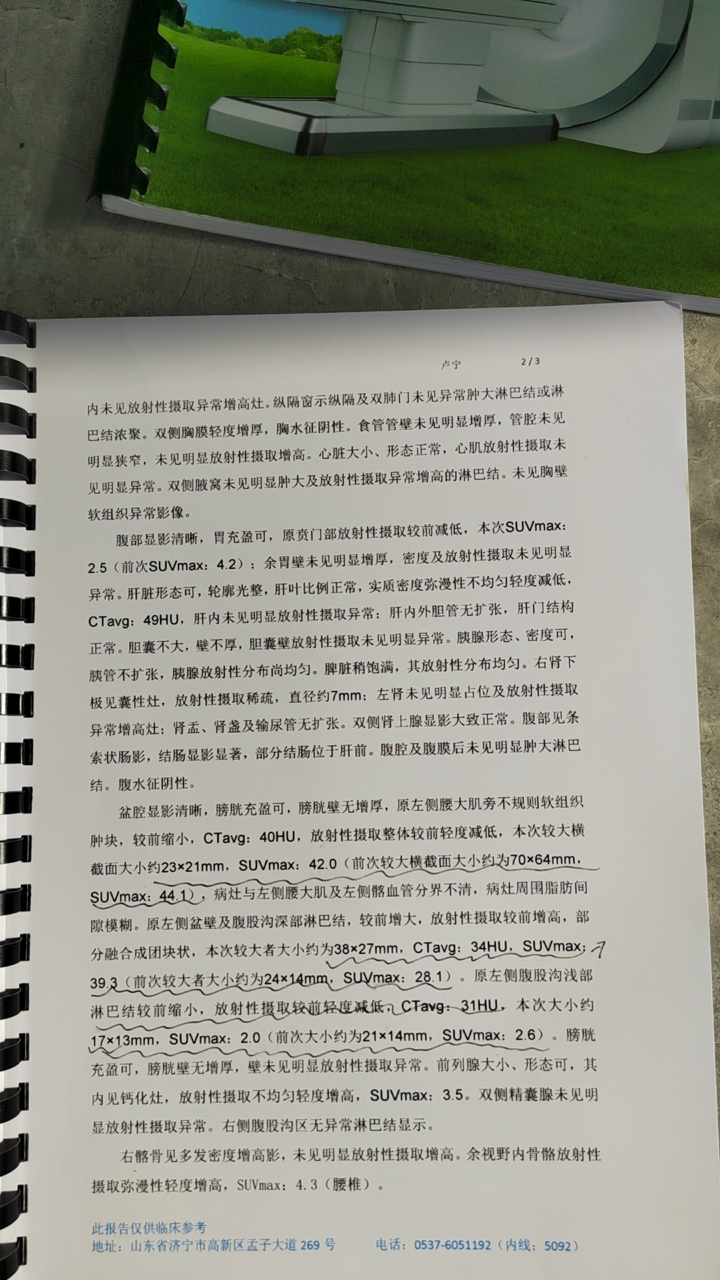 卢宁 2/3
内未见放射性摄取异常增高灶。纵隔窗示纵隔及双肺门未见异常肿大淋巴结或淋
巴结浓聚。双侧胸膜轻度增厚，胸水征阴性。食管管壁未见明显增厚，管腔未见
明显狭窄，未见明显放射性摄取增高。心脏大小、形态正常，心肌放射性摄取未
见明显异常。双侧腋窝未见明显肿大及放射性摄取异常增高的淋巴结。未见胸壁
软组织异常影像。
腹部显影清晰，胃充盈可，原贲门部放射性摄取较前减低，本次SUVmax：
2.5（前次SUVmax：4.2）；余胃壁未见明显增厚，密度及放射性摄取未见明显
异常。肝脏形态可，轮廓光整，肝叶比例正常，实质密度弥漫性不均匀轻度减低，
CTavg：49HU，肝内未见明显放射性摄取异常；肝内外胆管无扩张，肝门结构
正常。胆囊不大，壁不厚，胆囊壁放射性摄取未见明显异常。胰腺形态、密度可，
胰管不扩张，胰腺放射性分布尚均匀。脾脏稍饱满，其放射性分布均匀。右肾下
极见囊性灶，放射性摄取稀疏，直径约7mm；左肾未见明显占位及放射性摄取
异常增高灶；肾盂、肾盏及输尿管无扩张。双侧肾上腺显影大致正常。腹部见条
索状肠影，结肠显影显著，部分结肠位于肝前。腹腔及腹膜后未见明显肿大淋巴
结。腹水征阴性。
盆腔显影清晰，膀胱充盈可，膀胱壁无增厚，原左侧腰大肌旁不规则软组织
肿块，较前缩小，CTavg：40HU，放射性摄取整体较前轻度减低，本次较大横
截面大小约23×21mm，SUVmax：42.0（前次较大横截面大小约为70×64mm，
SUVmax：44.1），病灶与左侧腰大肌及左侧髂血管分界不清，病灶周围脂肪间
隙模糊。原左侧盆壁及腹股沟深部淋巴结，较前增大，放射性摄取较前增高，部
分融合成团块状，本次较大者大小约为38×27mm，CTavg：34HU，SUVmax：
39.3（前次较大者大小约为24×14mm，SUVmax：28.1）。原左侧腹股沟浅部
淋巴结较前缩小，放射性摄取较前轻度减低，CTavg：31HU，本次大小约
17×13mm，SUVmax：2.0（前次大小约为21×14mm，SUVmax：2.6）。膀胱
充盈可，膀胱壁无增厚，壁未见明显放射性摄取异常。前列腺大小、形态可，其
内见钙化灶，放射性摄取不均匀轻度增高，SUVmax：3.5。双侧精囊腺未见明
显放射性摄取异常。右侧腹股沟区无异常淋巴结显示。
右髂骨见多发密度增高影，未见明显放射性摄取增高。余视野内骨骼放射性
摄取弥漫性轻度增高，SUVmax：4.3（腰椎）。
此报告仅供临床参考
地址：山东省济宁市高新区孟子大道 269 号 电话：0537-6051192（内线：5092）